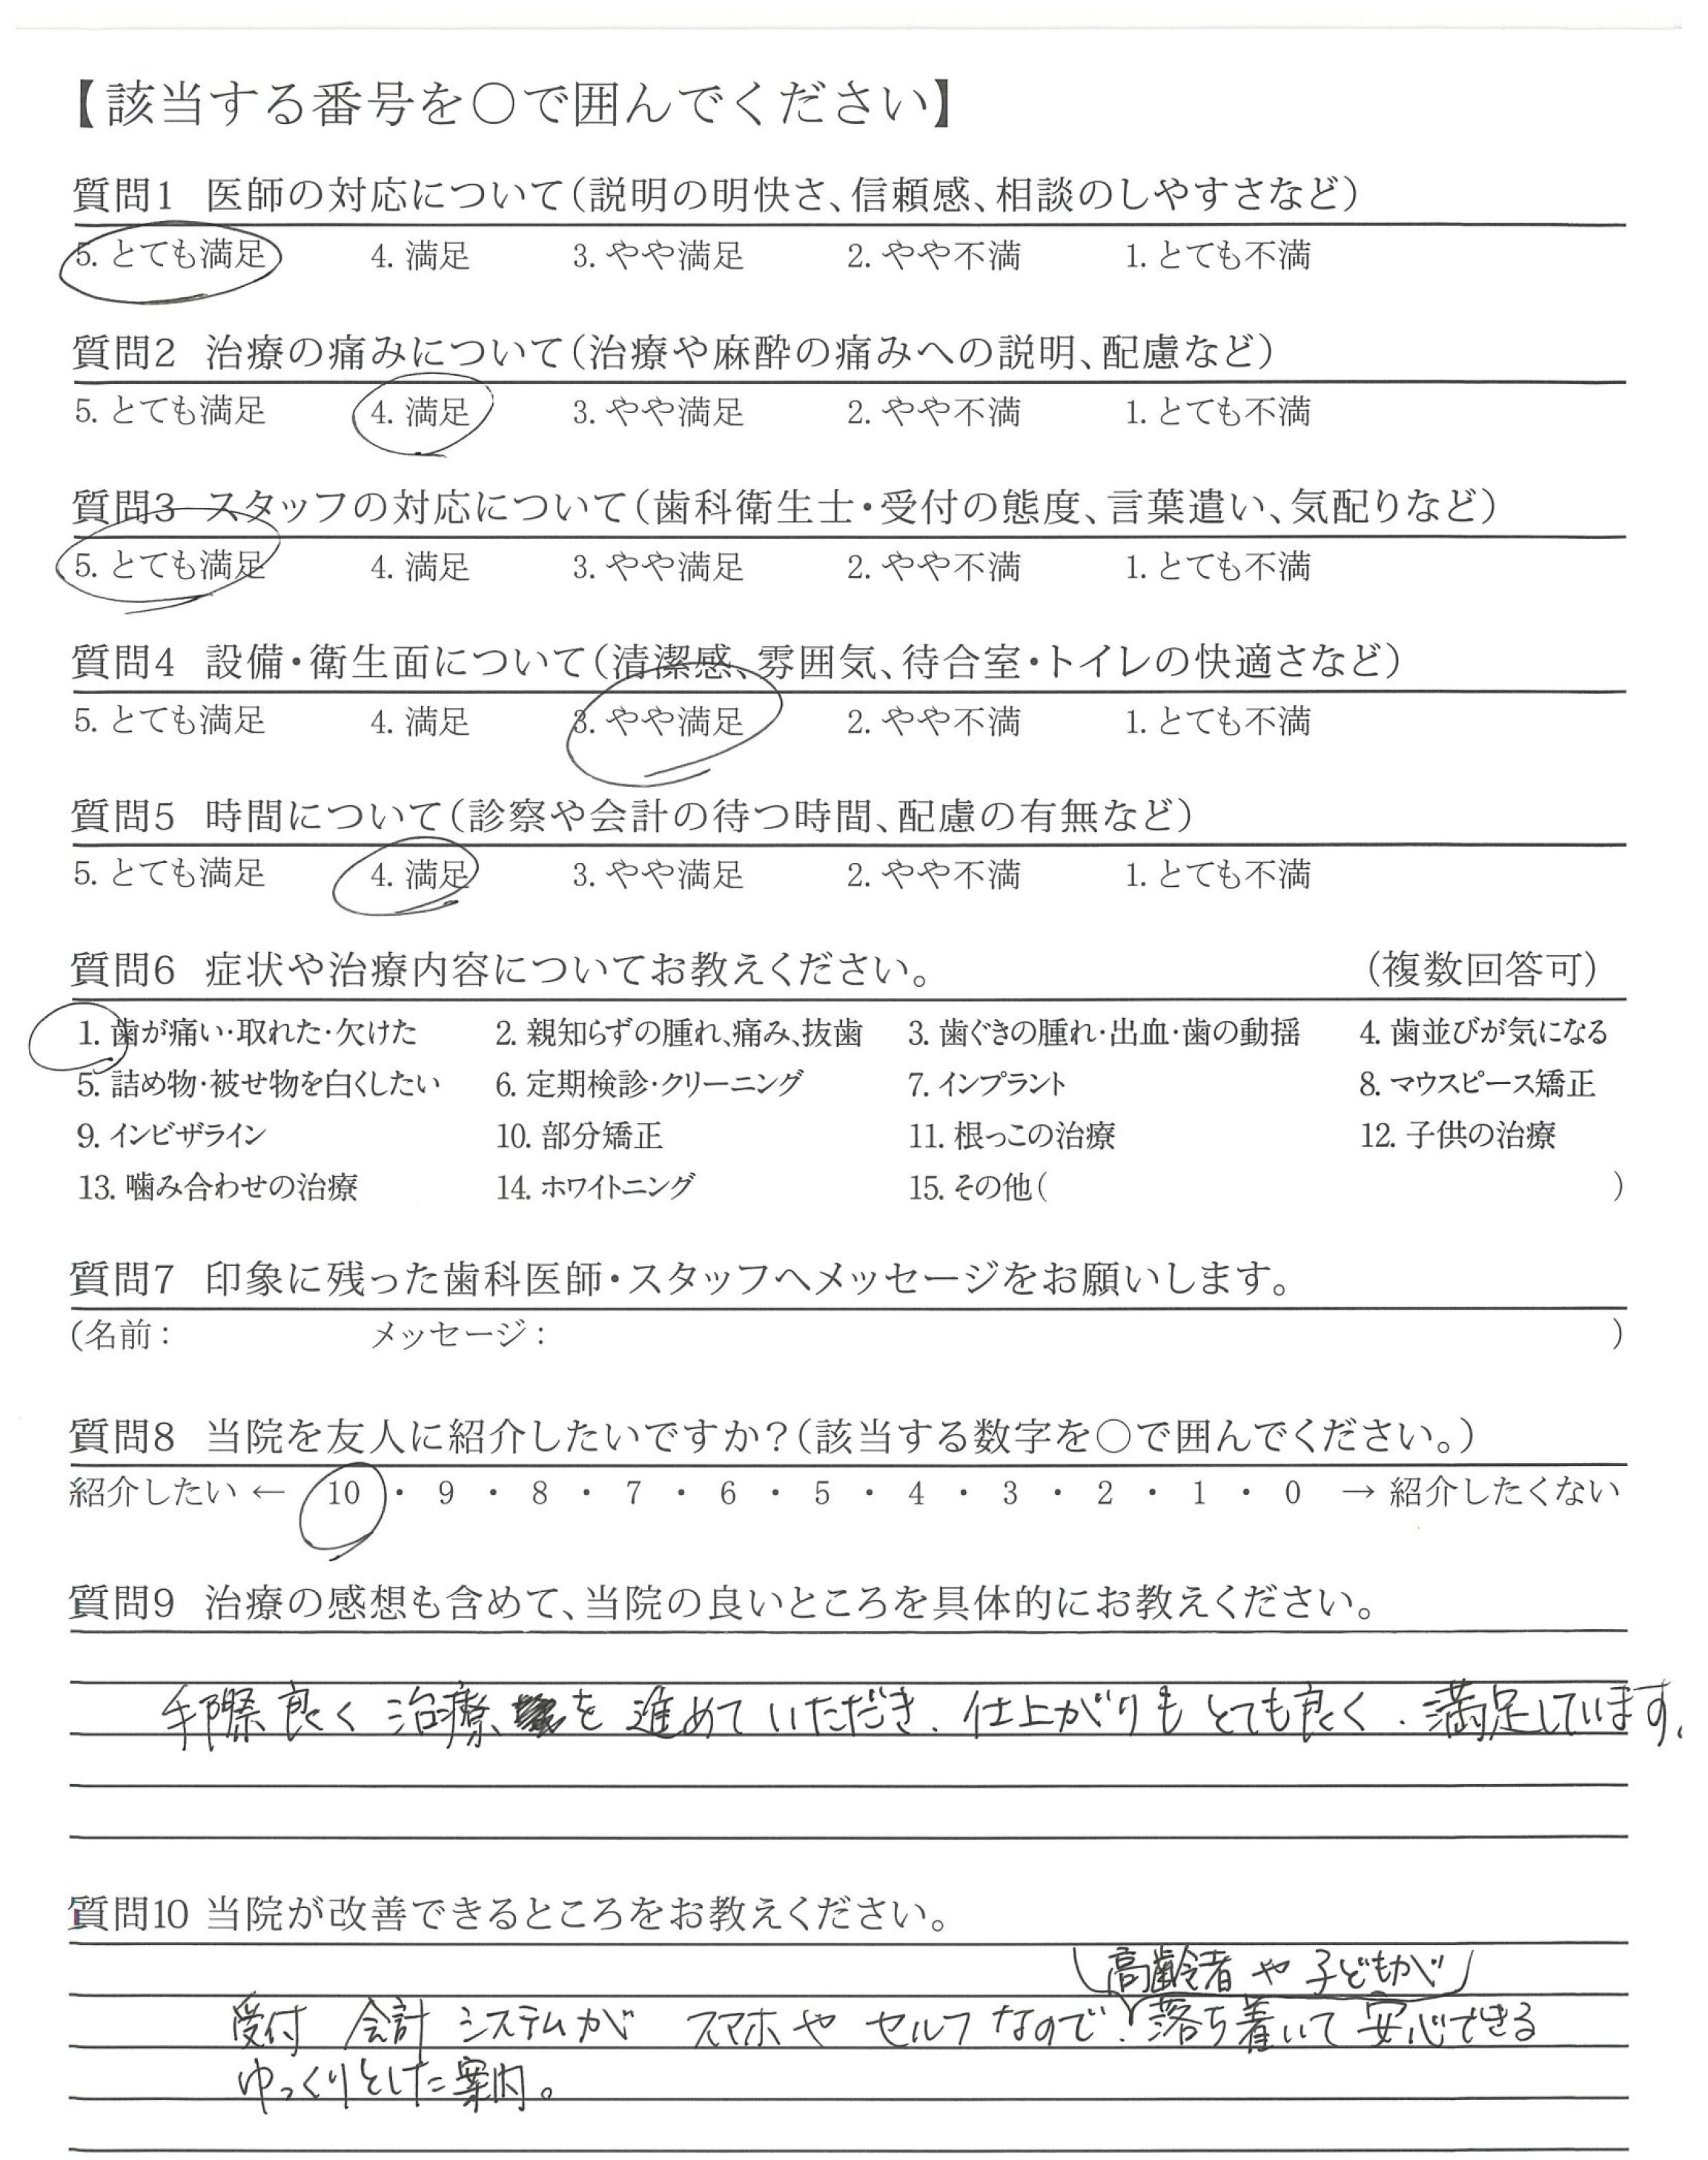 【該当する番号を○で囲んでください】
質問1 医師の対応について(説明の明快さ、信頼感、相談のしやすさなど)
5. とても満足 4. 満足 3. やや満足 2. やや不満 1. とても不満
質問2 治療の痛みについて(治療や麻酔の痛みへの説明、配慮など)
5. とても満足 4. 満足 3. やや満足 2. やや不満 1. とても不満
質問3 スタッフの対応について(歯科衛生士・受付の態度、言葉遣い、気配りなど)
5. とても満足 4. 満足 3. やや満足 2. やや不満 1. とても不満
質問4 設備・衛生面について(清潔感、雰囲気、待合室・トイレの快適さなど)
5. とても満足 4. 満足 3. やや満足 2. やや不満 1. とても不満
質問5 時間について(診察や会計の待つ時間、配慮の有無など)
5. とても満足 4. 満足 3. やや満足 2. やや不満 1. とても不満
質問6 症状や治療内容についてお教えください。 (複数回答可)
1. 歯が痛い・取れた・欠けた 2. 親知らずの腫れ、痛み、抜歯 3. 歯ぐきの腫れ・出血・歯の動揺 4. 歯並びが気になる
5. 詰め物・被せ物を白くしたい 6. 定期検診・クリーニング 7. インプラント 8. マウスピース矯正
9. インビザライン 10. 部分矯正 11. 根っこの治療 12. 子供の治療
13. 噛み合わせの治療 14. ホワイトニング 15. その他( )
質問7 印象に残った歯科医師・スタッフへメッセージをお願いします。
(名前: メッセージ: )
質問8 当院を友人に紹介したいですか?(該当する数字を○で囲んでください。)
紹介したい ← 10 ・ 9 ・ 8 ・ 7 ・ 6 ・ 5 ・ 4 ・ 3 ・ 2 ・ 1 ・ 0 → 紹介したくない
質問9 治療の感想も含めて、当院の良いところを具体的にお教えください。
手際良く治療を進めていただき、仕上がりもとても良く、満足しています。
質問10 当院が改善できるところをお教えください。
高齢者や子どもが
受付 会計 システムが スマホや セルフなので、落ち着いて安心できる
ゆっくりとした案内。